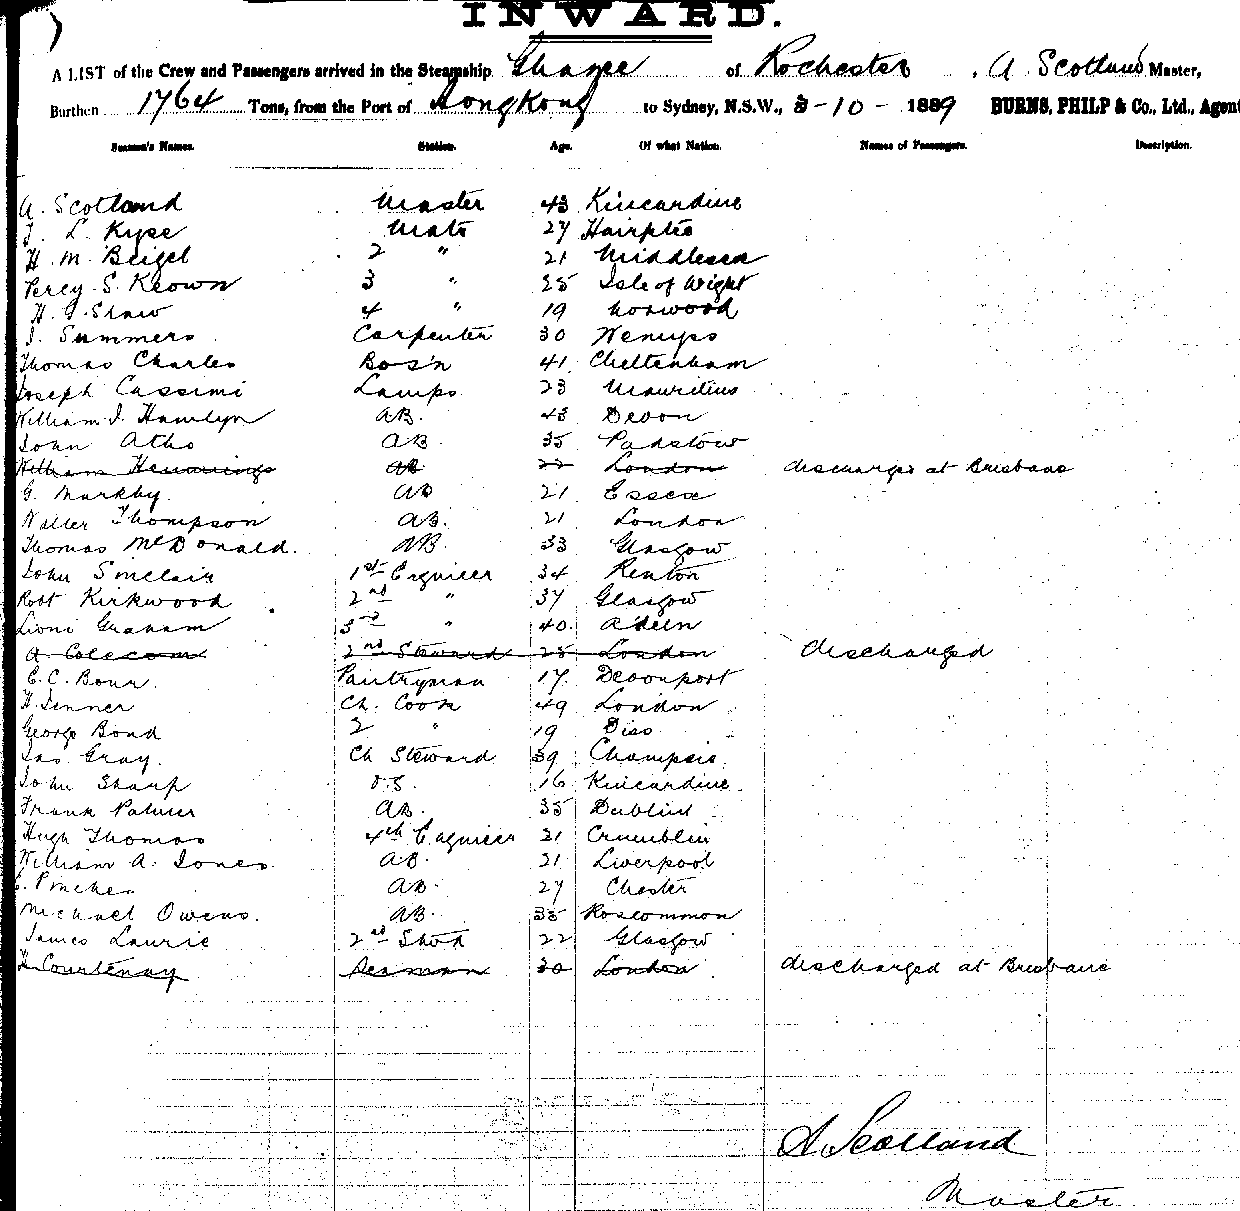 INWARD.
A LIST of the Crew and Passengers arrived in the Steamship of Rochester, A Scotland Master,
Burthen 1764 Tons, from the Port of Hong Kong to Sydney, N.S.W., 3-10-1889 BURNS, PHILP & Co., Ltd., Agent
Seamen's Names. Station. Age. Of what Nation. Names of Passengers. Description.
A. Scotland Master 43 Kincardine
L. Kyse Mate 27
H. M. Beigel 2 " 21 Middlesex
Percy S. Keown 3 " 25 Isle of Wight
H. G. Shaw 4 " 19 Norwood
J. Summers Carpenter 30
Thomas Charles Bos'n 41 Cheltenham
Joseph Cassimi Lamps 23 Mauritius
William J. Hamlyn AB. 43 Devon
John Atho AB. 35 Padstow
William Hemmings AB 22 London discharged at Brisbane
G. Markby. AB 21 Essex
Walter Thompson AB. 21 London
Thomas McDonald. AB. 33 Glasgow
John Sinclair 1st Engineer 34 Renton
Robt Kirkwood 2nd " 37 Glasgow
Graham 3rd " 40.
A. 2nd Steward 25 London discharged
E. C. Bour. Pantryman 17. Devonport
H. Jenner Ch. Cook 49 London
George Bond 2 " 19 Diss
Jas. Gray. Ch Steward 39
John Sharp O.S. 16 Kincardine.
Frank Palmer AB. 35 Dublin
Hugh Thomas 4th Engineer 21 Crumblin
William A. Jones AB. 21 Liverpool
AB. 27 Chester
Michael Owens. AB. 35 Roscommon
James Laurie 2nd Stwd 22 Glasgow
H. Courtenay 30 London discharged at Brisbane
A Scotland
Master